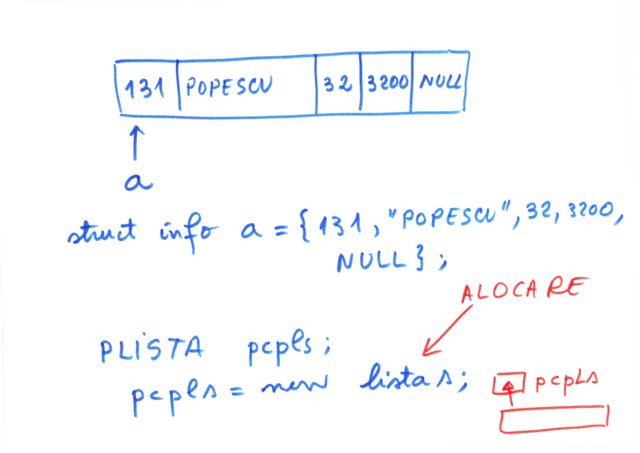 131 POPESCU 32 3200 NULL
a
struct info a = { 131, "POPESCU", 32, 3200,
NULL };
ALOCARE
PLISTA pcpls;
pcpls = new listas; pcpLs